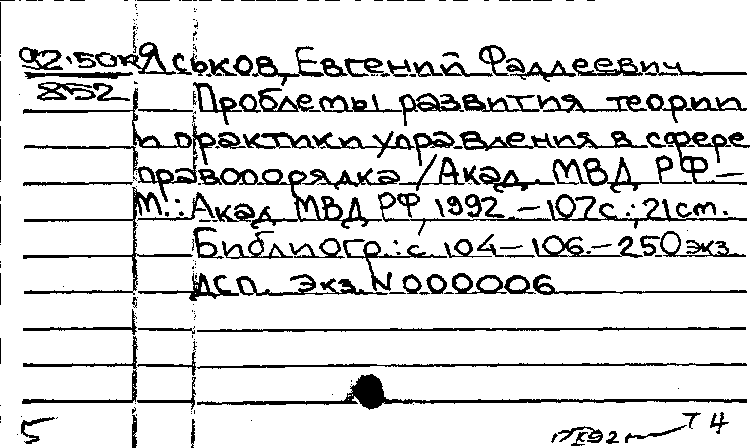 92-50к Яськов, Евгений Фаддеевич
852 Проблемы развития теории
и практики управления в сфере
правопорядка / Акад. МВД РФ –
М.: Акад. МВД РФ, 1992. – 107с.; 21см.
Библиогр.: с. 104–106. – 250 экз.
ДСП. Экз. N 000006
5 T 4